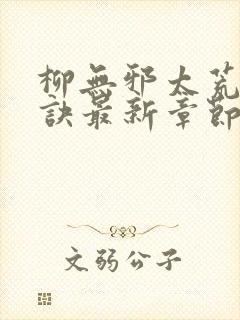 柳無邪太荒
訣最新章節
文弱公子